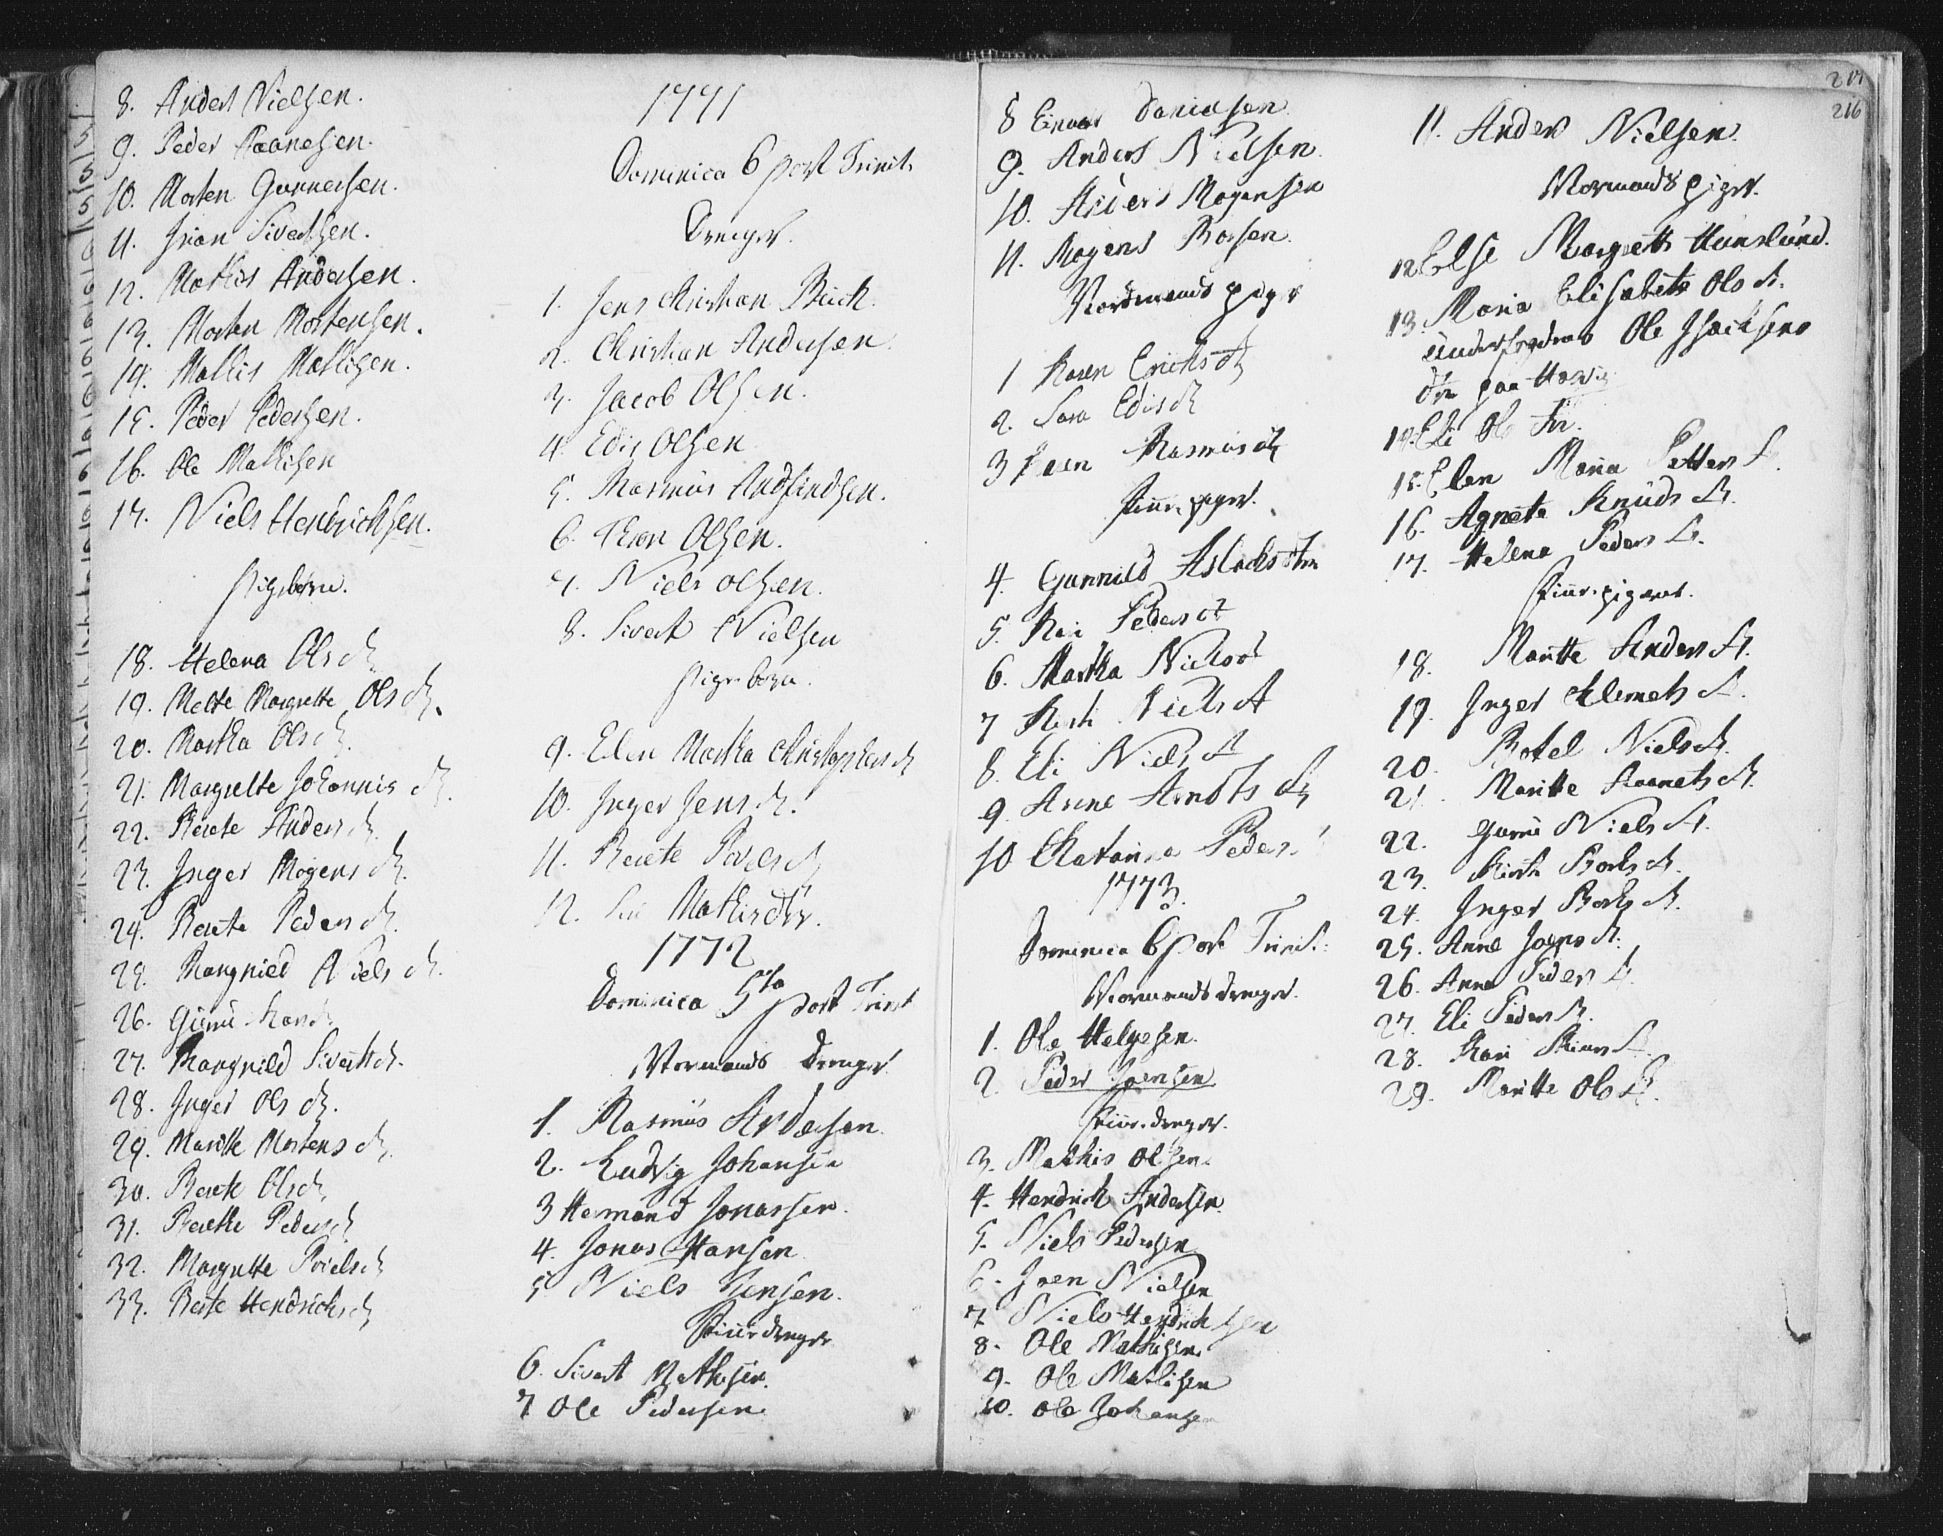 8. Anders Nielsen.
9. Peder Paanesen.
10. Morten Gunnersen.
11. Joen Sivertsen.
12. Mathis Andersen.
13. Morten Mortensen.
14. Mathis Mathisen.
15. Peder Pedersen.
16. Ole Mathisen
17. Niels Hendrichsen.
Pigebørn.
18. Helena Ols d.
19. Mette Margrette Ols d.
20. Martha Ols d.
21. Margrette Johannis d.
22. Berete Anders d.
23. Inger Mogens d.
24. Berete Peders d.
25. Rangnild Niels d.
26. Gurru
27. Rangnild Siverts d.
28. Inger Ols d.
29. Maritte Mortens d.
30. Berete Ols d.
31. Berette Peders d
32. Margrette Poiels d
33. Berte Hendrichs d
1771
Dominica 6 post Trinit.
Drenger.
1. Jens Christian Buck.
2. Christian Andersen.
3. Jacob Olsen.
4. Edis Olsen
5. Rasmus Andfindsen.
6. Thron Olsen.
7. Niels Olsen.
8. Sivert Nielsen
Pigebørn.
9. Elen Martha Christophers d
10. Inger Jens d.
11. Berete Povels d
12. Mathis dtr.
1772
Dominica 5ta post Trinit
Normands Drenger
1. Rasmus Andersen
2. Ludvig Johansen
3 Hermand Jonassen.
4. Jonas Hansen
5 Niels Jensen.
Finnedrenger
6. Sivert Mathisen.
7 Ole Pedersen
217
216
8 Einar Danielsen
9. Anders Nielsen
10. Anders Mogensen
11. Mogens Borsen.
Nordmands piger
1 Karen Erichs d
2. Sara Edis d
3 Rasmus d
Finne piger.
4. Gunnild Aslachs dtr
5. Kari Peders d
6. Martha Niels d
7 Kirsti Niels d
8. Eli Niels d
9. Anne Arndts d
10 Chatarina Peders
1773.
Dominica 6 post Trinit.
Normands drenger.
1. Ole Helgesen.
2. Peder Joensen
Finnedrenger.
3. Mathis Olsen.
4. Hendrich Andersen.
5. Niels Pedersen
6. Joen Nielsen
7 Niels Hendrichsen
8. Ole Mathisen
9. Ole Mathisen
10. Ole Johansen
11. Anders Nielsen.
Normands piger.
12 Else Margrette Hunslund.
13. Maria Elisabeth Ols d.
Ole Isacksens
dtr paa
14. Eli Ols dr.
15. Elen Maria Petters d.
16. Agnete Knuds d.
17. Helena Peders d.
Finne pigerne.
18. Maritte Anders d.
19. Inger Clemets d.
20. Botel Niels d.
21. Maritte d.
22. Gurru Niels d.
23. Kirsti Bols d.
24. Inger d.
25. Anne Joens d.
26. Anne Peders d.
27. Eli Peders d.
28. Kari d.
29. Maritte Ols d.